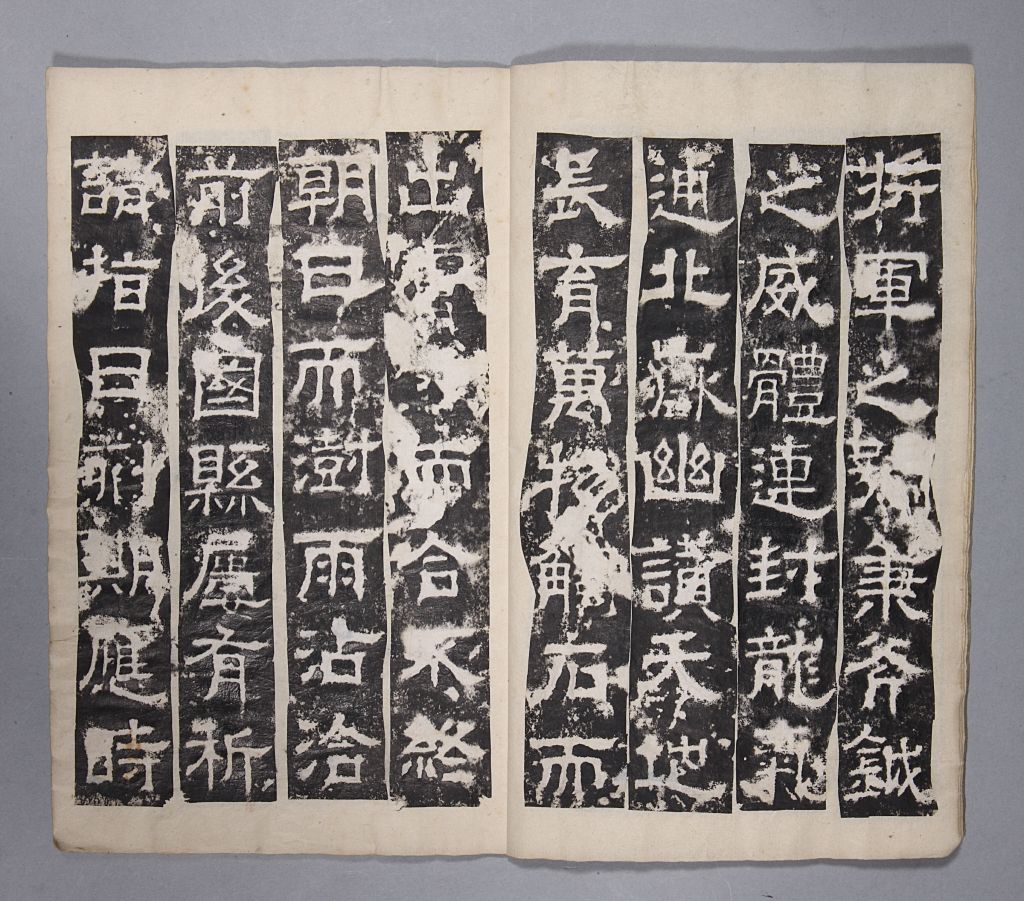 將軍之號秉斧鉞
之威體連封龍氣
通北嶽幽讚天地
長育萬物觸石而
出膚寸而合不終
朝日而澍雨沾洽
前後國縣屢有祈
請指日刻期應時